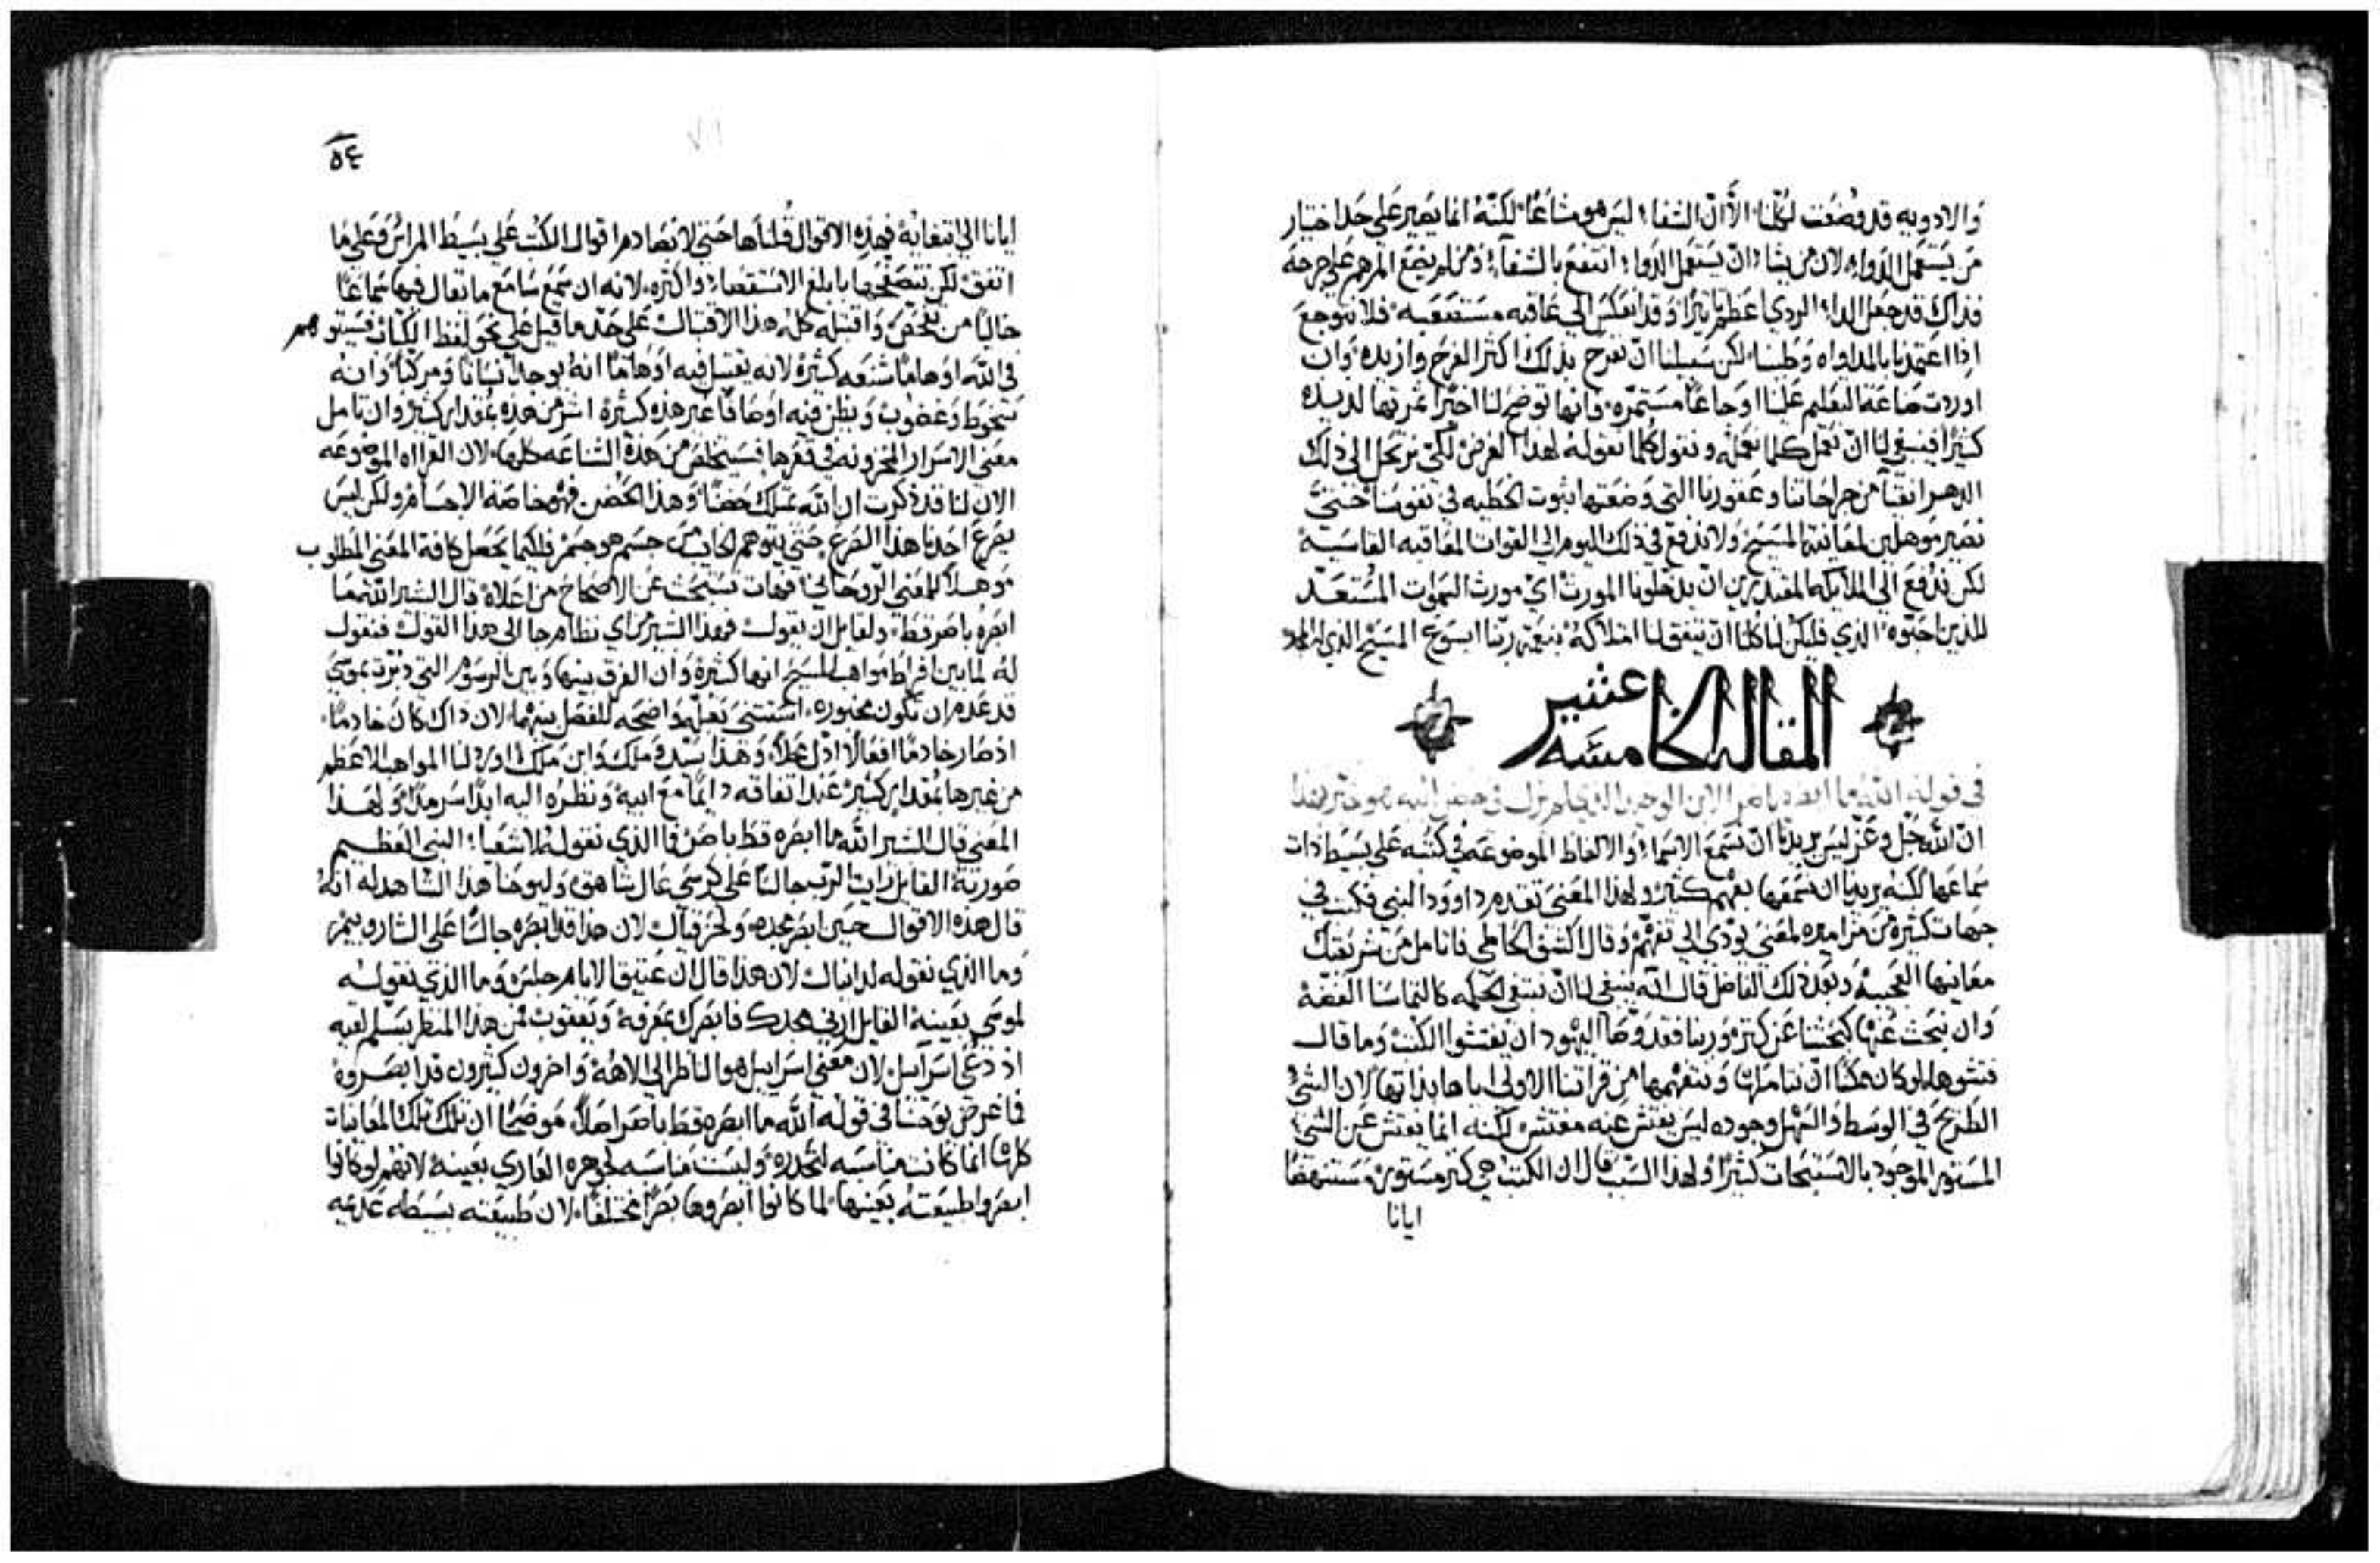 والادويه قد وضعت لكلنا الا ان الشفاء ليس هو مشاعًا لكنه انما يصير على حد اختيار
من يستعمل الدواء لان من يشاء ان يستعمل الدواء انتفع بالشفاء ومن لم يضع المرهم على جرحه
فذاك قد جعل الداء الردي اعظم تاثيرًا وقد انعكس الى عاقبه مستصعبه فلا نتوجع
اذا اعتمدنا بالمداواه وطبنا لكن سبيلنا ان نفرح بذلك اكثر الفرح وازيده وان
اوردت صناعة التعليم علينا اوجاعًا مستمره فانها توضح لنا اخيرًا ثمرتها لذيذه
كثيرًا فينبغي لنا ان نعمل كلما نعمله ونقول كلما نقوله لهذا الغرض لكي نرتحل الى ذلك
الدهر انقيآ من جراحاتنا وعقورنا التي وضعتها ثبوت الخطيه في نفوسنا حتى
نصير موهلين لمعاينة المسيح ولا ندفع في ذلك اليوم الى القوات المعاقبه القاسيه
لكن ندفع الى الملايكه المقتدرين ان يدخلونا المورث اي مورث السموات المستعد
للذين احبوه الذي فليكن لنا كلنا ان يتفق لنا امتلاكه بنعمة ربنا ايسوع المسيح الذي له المجد
المقاله الخامسه عشر
في قوله الله ما ابصره باصر الابن الوحيد الذي لم يزل في حضن ابيه هو خبر بهذا
ان الله جل وعز ليس يريدنا ان نسمع الاسماء والالفاظ الموضوعه في كتبه على بسيط ذات
سماعها لكنه يريدنا ان نسمعها بفهم كثير ولهذا المعنى تقدم داوود النبي فكتب في
جهات كثيره من مزاميره لمعنى يودي الى تفهم وقال اكشف لحاظي فاتامل من شريعتك
معانيها العجيبه وبعد ذلك الفاضل قال انه ينبغي لنا ان نبتغي الحكمه كالتماسنا الفضه
وان نبحث عنها كبحثنا عن كنز وربنا فقد وصا اليهود ان يفتشوا الكتب وما قال
فتشوها لو كان ممكنًا ان نتاملها ونتفهمها من قراتنا الاولى اياها بذاتها لان الشي
الطريح في الوسط والسهل وجوده ليس يفتش عنه مفتش لكنه انما يفتش عن الشي
المستور الموجود بالاستبحاث كثيرًا ولهذا السبب قال ان الكتب هي كنز مستور مستنهضًا
ايانا
٥٤
ايانا الى ابتغائه فهذه الاقوال قلناها حتى لا نصادم اقوال الكتب على بسيط المراس وعلى ما
اتفق لكن نتصفحها بابلغ الاستقصاء واكثره لانه ان سمع سامع ما يقال فيها سماعًا
خاليًا من تفحص واقتبله كله هذا الاقتبال على حد ما قيل على نحو لفظ الكتاب فسيتوهم
في الله اوهامًا شنعه كثيره لانه يقتبل فيه اوهامًا انه يوجد انسانًا ومركبًا وانه
سخوط وغضوب ويظن فيه اوصافًا غير هذه كثيره اشر من هذه بمقدار كثير وان تامل
معنى الاسرار المخزونه في قعرها فسيتخلص من هذه الشناعه كلها لان القراه الموضوعه
الان لنا قد ذكرت ان الله يمتلك حضنًا وهذا الحضن فهو خاصة الاجسام ولكن ليس
يفزع احدنا هذا الفزع حتى يتوهم الخالي من جسم هو جسم فلكيما يحصل كافة المعنى المطلوب
موهلًا للمعنى الروحاني فهات نستبحث عن الاصحاح من اعلاه قال البشير الله ما
ابصره باصر قط ولقايل ان يقول فهذا البشير من اي نظام جا الى هذا القول فنقول
له لما بين افراط مواهب المسيح انها كثيره وان الفرق بينها وبين الرسوم التي دبرت بموسى
قد عدم ان تكون محصوره استثنى بعلة واضحه للفصل بينهما لان ذاك كان خادمًا
اذ صار خادمًا افعالًا اذل محلًا وهذا سيد وملك وابن ملك اورد لنا المواهب الاعظم
من غيرها بمقدار كثير عند اتفاقه دايمًا مع ابيه ونظره اليه ابدًا سرمدًا ولهذا
المعنى قال البشير الله ما ابصره قط باصر فما الذي نقوله لاشعيا النبي العظيم
صورته القايل رايت الرب جالسًا على كرسي عال شاهق وليوحنا هذا الشاهد له انه
قال هذه الاقوال حين ابصر مجده ولحزقيال لان هذا قد ابصره جالسًا على الشاروبيم
وما الذي نقوله لدانيال لان هذا قال ان عتيق الايام جلس وما الذي نقوله
لموسى بعينه القايل ارني مجدك فابصرك بمعرفة ويعقوب فمن هذا المنظر تسلم لقبه
اذ دعي اسراييل لان معنى اسراييل هو الناظر الى الاهه واخرون كثيرون قد ابصروه
فما غرض يوحنا في قوله الله ما ابصره قط باصر اصلًا موضحًا ان تلك المعاينات
كلها انما كانت مناسبه لتحدره وليست مناسبه لجوهره العاري بعينه لانهم لو كانوا
ابصروا طبيعته بعينها لما كانوا ابصروها بصرًا مختلفًا لان طبيعته بسيطه عدمه